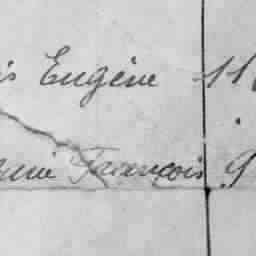 is Eugène 11
François 9